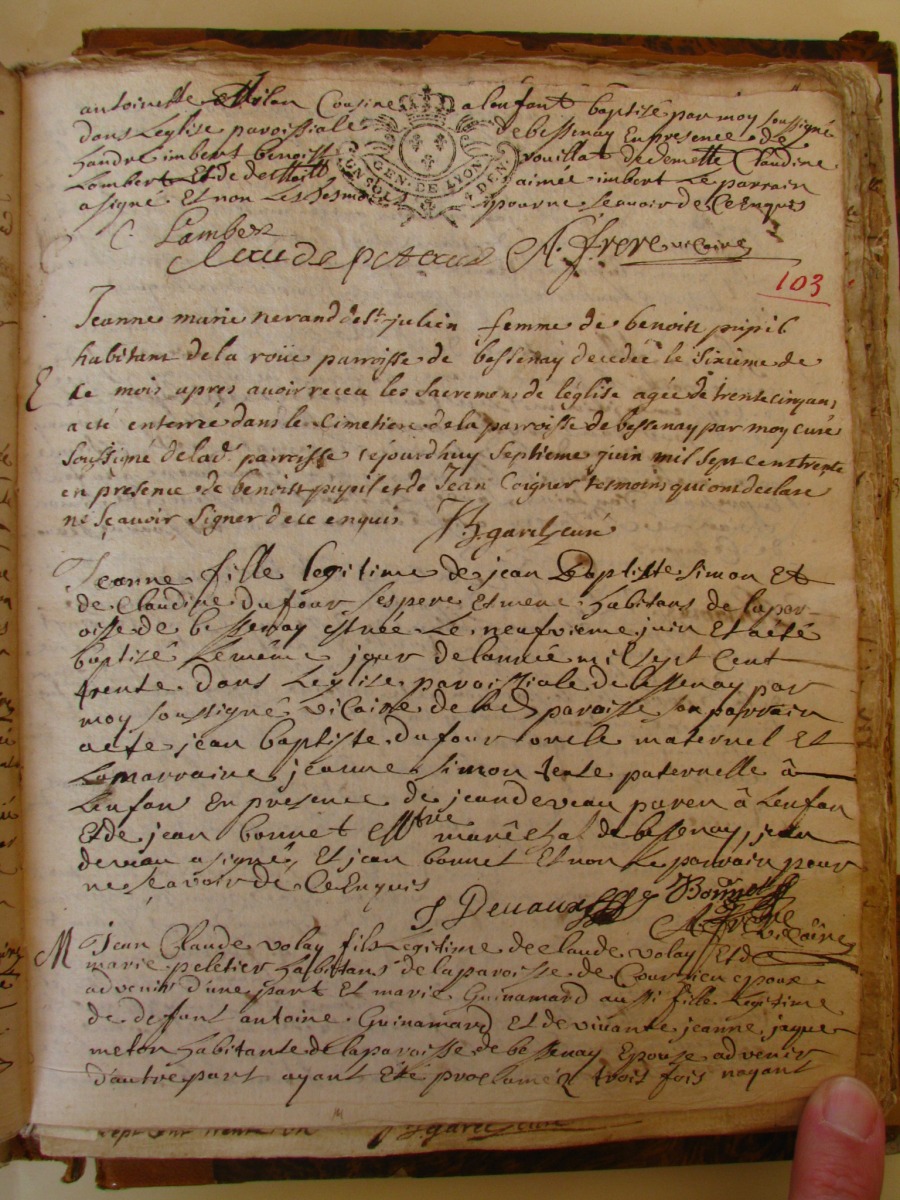 antoinette Cousine a leufant baptisé par moy soussigné
dans Leglise paroissiale de bessenay En presence de
handré imbert benoist rouillat de demette Claudine
Lambert Et de aimée imbert Le parrain
a signé Et non Les tesmoins pour ne scavoir de Ce Enquis
GEN. DE LYON
C Lambert
Claude A. frere vicaire
103
Jeanne marie nerand de St julien femme de benoist pupil
habitant de la roüe parroisse de bessenay decedée le sixième de
E ce mois apres avoir receu les sacremens de léglise agée de trente cinq ans
a eté enterrée dans le Cimetiere de la parroisse de bessenay par moy curé
soussigné de lad parroisse cejourdhuy septieme juin mil sept cens trente
en presence de benoist pupil et de Jean Coignet tesmoins qui ont declare
ne sçavoir signer de ce enquis
garel curé
Jeanne fille legitime de jean Baptiste simon Et
de Claudine dufour ses pere Et mere habitans de la par-
oisse de bessenay Est née Le neufvieme juin Et a été
baptisé Le méme jour de lannée mil sept Cent
trente dans Leglise paroissiale de bessenay par
moy soussigné vicaire de lad paroisse son parrain
a eté jean baptiste dufour oncle maternel Et
La marraine jeanne simon tente paternelle â
Lenfan En presence de jean deveau paren â Lenfan
Et de jean bonnet mtre maréchal de bessenay, jean
deveau a signé, Et jean bonnet Et non Le parrain pour
ne scavoir de Ce Enquis
J Devaux Bonnet
A. frere vicaire
M Jean Claude volay fils Legitime de claude volay Et de
marie peletier habitans de la paroisse de Courzieu epoux
advenir d'une part Et marie Guinamard aussi fille Legitime
de defunt antoine Guinamard Et de vivante jeanne jaque
meton habitante de la paroisse de bessenay Epouse advenir
d'autre part ayant Eté proclamez trois fois nayant
sept cent trente un garel curé